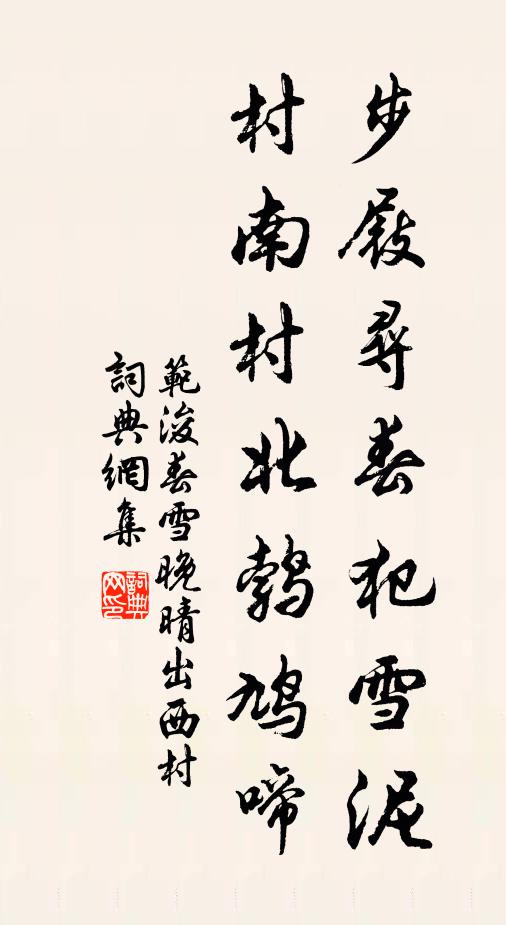 步屐尋春犯雪泥
村南村北鵓鳩啼
範浚春雪晚晴出西村
詞典網集
詞典网印